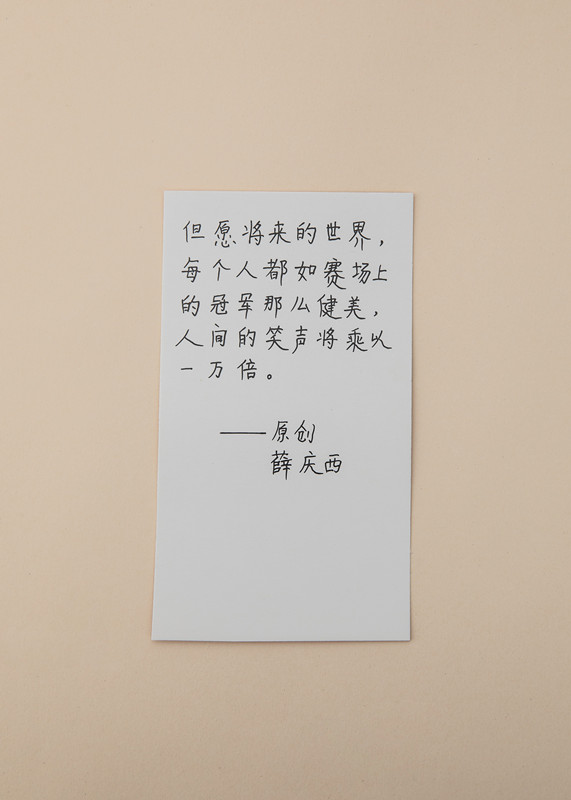 但愿将来的世界，
每个人都如赛场上
的冠军那么健美，
人间的笑声将乘以
一万倍。
——原创
薛庆西